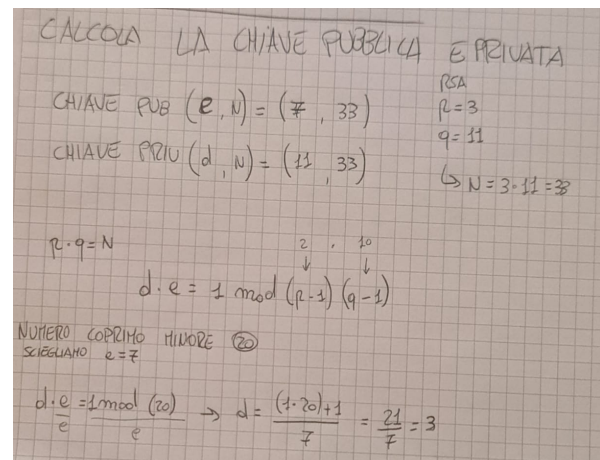 CALCOLA LA CHIAVE PUBBLICA E PRIVATA
RSA
p=3
q=11
↳ N=3·11=33
CHIAVE PUB (e, N) = (7, 33)
CHIAVE PRIV (d, N) = (11, 33)
p·q=N
2 · 10
↓ ↓
d·e = 1 mod (p-1)(q-1)
NUMERO COPRIMO MINORE 20
SCIEGLIAMO e=7
d·e/e = 1 mod (20)/e → d = (1·20)+1/7 = 21/7 = 3